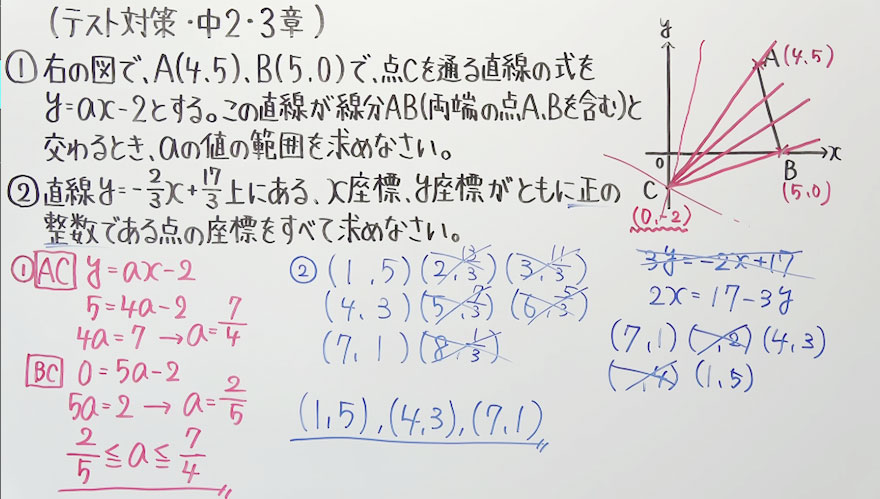 (テスト対策・中2・3章)
①右の図で、A(4.5)、B(5.0)で、点Cを通る直線の式を
y=ax-2とする。この直線が線分AB(両端の点A、Bを含む)と
交わるとき、aの値の範囲を求めなさい。
②直線y=-2/3x+17/3上にある、x座標、y座標がともに正の
整数である点の座標をすべて求めなさい。
y
A(4.5)
O
x
B
(5.0)
C
(0.-2)
①AC y=ax-2
5=4a-2
4a=7→a=7/4
BC 0=5a-2
5a=2→a=2/5
2/5≦a≦7/4
②(1.5)(2.13/3)(3.11/3)
(4.3)(5.7/3)(6.5/3)
(7.1)(8.1/3)
(1.5),(4.3),(7.1)
3y=-2x+17
2x=17-3y
(7.1)( .2)(4.3)
( .4)(1.5)